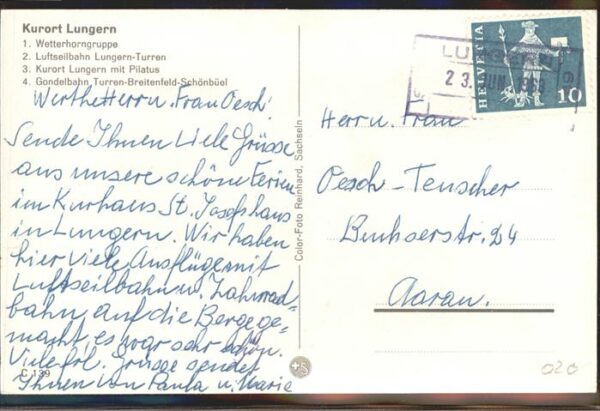 Kurort Lungern
1. Wetterhorngruppe
2. Luftseilbahn Lungern-Turren
3. Kurort Lungern mit Pilatus
4. Gondelbahn Turren-Breitenfeld-Schönbüel
Werthe Herrn u. Frau Oesch!
Sende Ihnen Liebe Grüsse
aus unsere schöne Ferien
im Kurhaus St. Josefshaus
in Lungern. Wir haben
hier viele Ausflüge mit
Luftseilbahn u. Zahnrad-
bahn, auf die Berge ge-
macht, es war sehr schön.
Viele frl. Grüsse sendet
Ihnen von Paula u. Marie
C 139
Color-Foto Reinhard, Sachseln
LUNGERN
23. JUN. 1968
HELVETIA
10
Herrn. Frau
Oesch-Teuscher
Buchserstr. 24
Aarau.
020